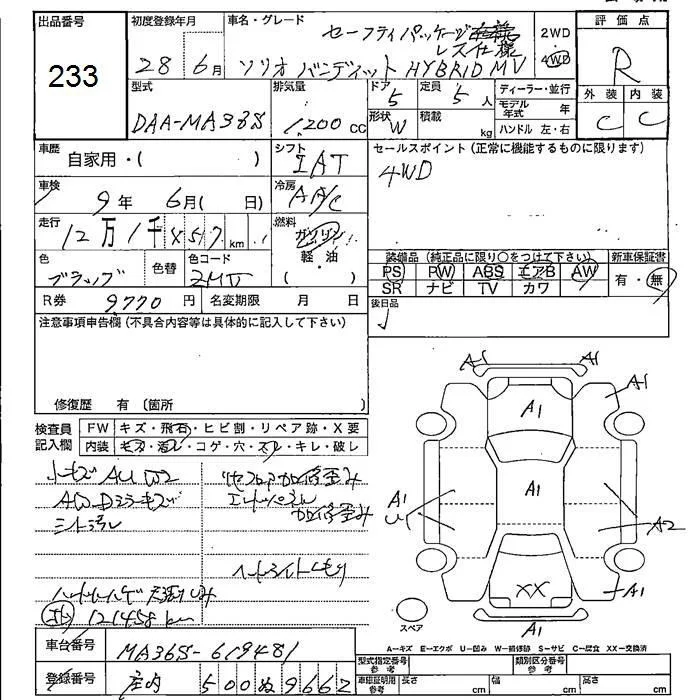 出品番号
233
初度登録年月
28 6月
車名・グレード
セーフティパッケージ
レス仕様
ソリオ バンディット HYBRID MV
2WD
4WD
評価点
R
外装 内装
C C
型式
DAA-MA36S
排気量
1,200 cc
ドア
5
定員
5 人
形状
W
積載
kg
ディーラー・並行
モデル年式 年
ハンドル 左・右
車歴
自家用・( )
シフト
IAT
セールスポイント(正常に機能するものに限ります)
4WD
車検
9年 6月( 日)
冷房
AAC
走行
12万1千457km
燃料
ガソリン
軽・油
( )
色
ブラック
色替
色コード
ZMV
装備品(純正品に限り○をつけて下さい)
新車保証書
PS PW ABS エアB AW
SR ナビ TV カワ
有・無
R券 9770円
名変期限 月 日
後日品
注意事項申告欄(不具合内容等は具体的に記入して下さい)
修復歴 有 (箇所 )
検査員
記入欄
FW キズ・飛石・ヒビ割・リペア跡・X要
内装 モケ・汚レ・コゲ・穴・スレ・キレ・破レ
小キズ AU W2
AW Dミラーキズ
シート汚レ
リヤフロア加修歪み
エンドパネル
加修歪み
ヘッドライトくもり
121458km
A1 A1
A1
A1
A1
A1
U1
A2
XX
A1
A1
スペア
A=キズ E=エクボ U=凹み W=補修跡 S=サビ C=腐食 XX=交換済
車台番号
MA36S-619481
登録番号
庄内 500 ぬ 9662
型式指定番号
参考
類別区分番号
参考
車庫証明用
参考
長さ cm
幅 cm
高さ cm